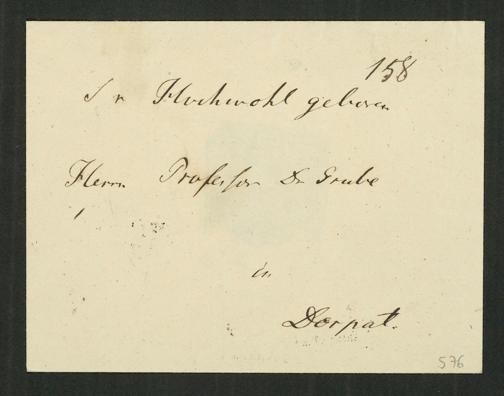 158
Sr Hochwohl geboren
Herrn Professor Dr Grube
in
Dorpat.
576